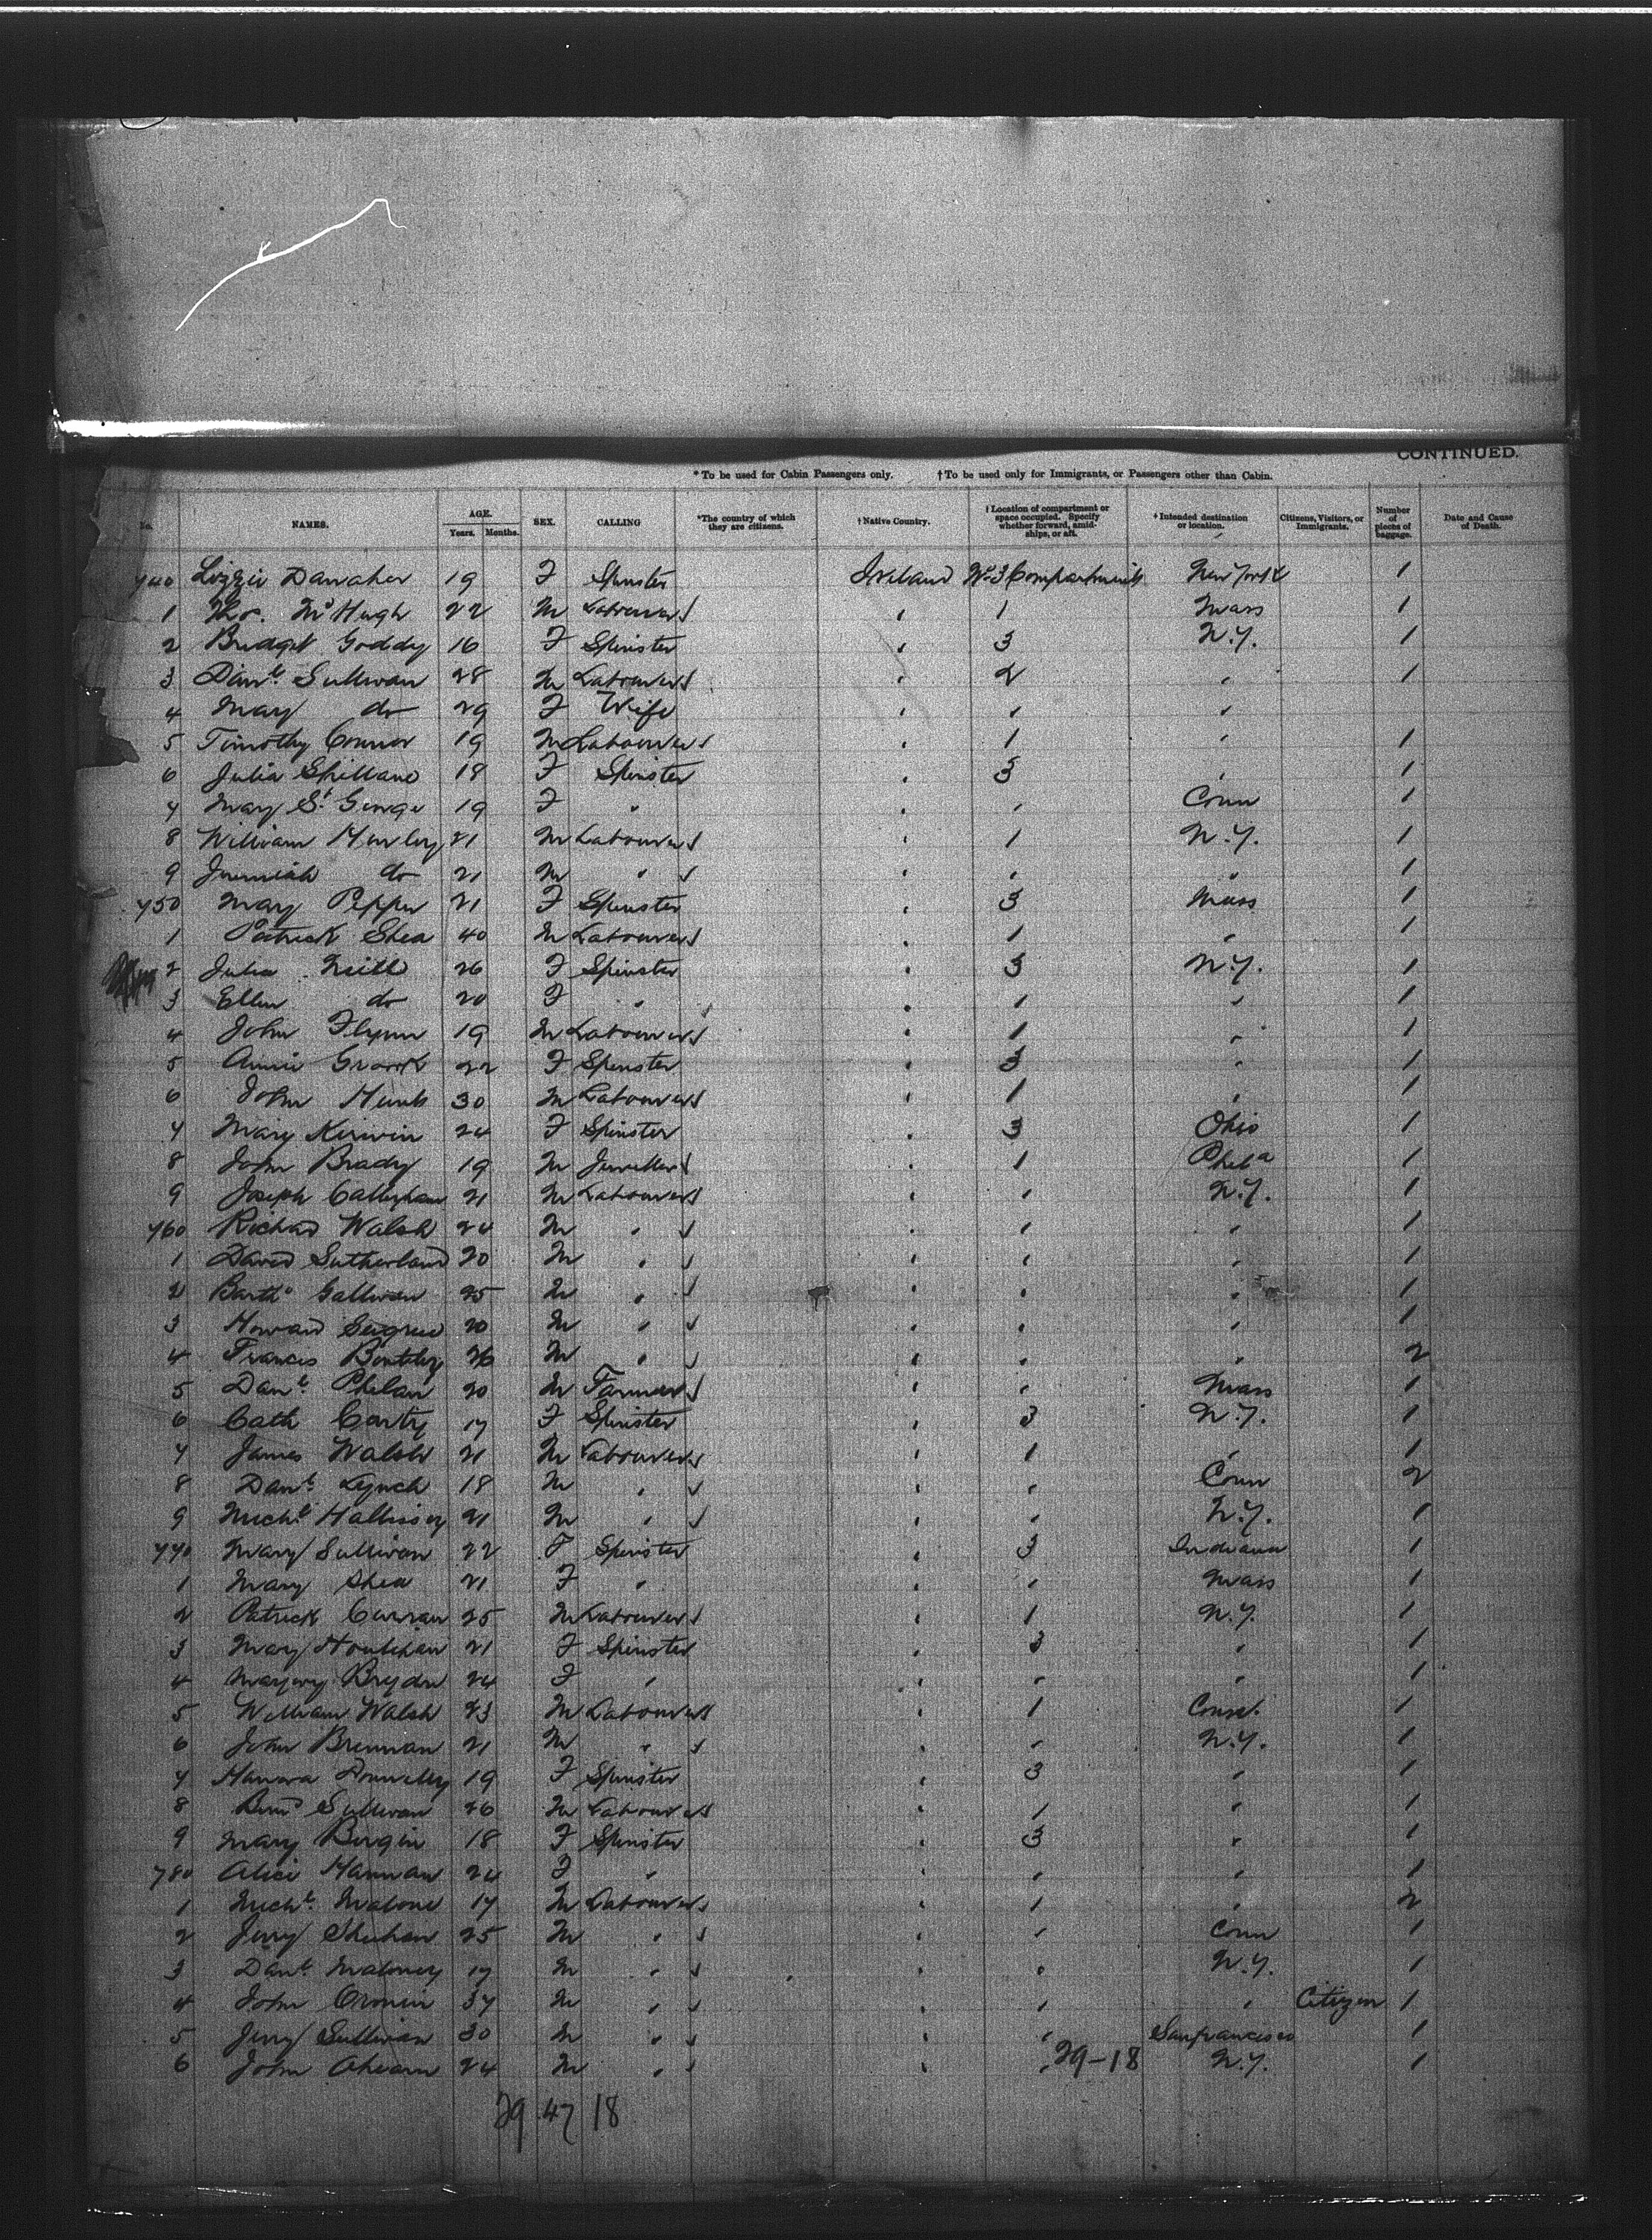 CONTINUED.
*To be used for Cabin Passengers only. †To be used only for Immigrants, or Passengers other than Cabin.
No. NAMES. AGE. Years. Months. SEX. CALLING *The country of which they are citizens. †Native Country. †Location of compartment or space occupied. Specify whether forward, amidships, or aft. †Intended destination or location. Citizens, Visitors, or Immigrants. Number of pieces of baggage. Date and Cause of Death.
740 Lizzie Danaher 19 F Spinster Ireland No 3 Compartment New York 1
1 Thos. McHugh 22 M Labourer " 1 Mass 1
2 Bridget Goddy 16 F Spinster " 3 N.Y. 1
3 Danl. Sullivan 28 M Labourer " 2 " 1
4 Mary do 29 F Wife " " "
5 Timothy Connor 19 M Labourer " 1 " 1
6 Julia Spillane 18 F Spinster " 3 " 1
7 Mary St. George 19 F " " " Conn 1
8 William Hurley 21 M Labourer " 1 N.Y. 1
9 Jeremiah do 21 M " " " " 1
750 Mary Pepper 21 F Spinster " 3 Mass 1
1 Patrick Shea 40 M Labourer " 1 " 1
2 Julia Neill 26 F Spinster " 3 N.Y. 1
3 Ellen do 20 F " " 1 " 1
4 John Flynn 19 M Labourer " 1 " 1
5 Annie 22 F Spinster " 3 " 1
6 John 30 M Labourer " 1 " 1
7 Mary Kirwin 24 F Spinster " 3 Ohio 1
8 John Brady 19 M Jeweller " 1 Phila 1
9 Joseph Callaghan 21 M Labourer " " N.Y. 1
760 Richard Walsh 24 M " " " " 1
1 David Sutherland 20 M " " " " 1
2 Bartho Gallivan 25 M " " " " 1
3 Howard 20 M " " " " 1
4 Francis 26 M " " " " 2
5 Danl. Phelan 20 M Farmer " " Mass 1
6 Cath Carty 17 F Spinster " 3 N.Y. 1
7 James Walsh 21 M Labourer " 1 " 1
8 Danl. Lynch 18 M " " " Conn 2
9 Michl. Hallissey 21 M " " " N.Y. 1
770 Mary Sullivan 22 F Spinster " 3 Indiana 1
1 Mary Shea 21 F " " " Mass 1
2 Patrick Curran 25 M Labourer " 1 N.Y. 1
3 Mary Houlihan 21 F Spinster " 3 " 1
4 Bryden 24 F " " " " 1
5 William Walsh 23 M Labourer " 1 1
6 John Brennan 21 M " " " N.Y. 1
7 Hanora Donnelly 19 F Spinster " 3 " 1
8 Sullivan 26 M Labourer " 1 " 1
9 Mary Bergin 18 F Spinster " 3 " 1
780 Alice Hannan 24 F " " " " 1
1 Michl. Malone 17 M Labourer " 1 " 2
2 Jerry Sheehan 25 M " " " Conn 1
3 Danl. Maloney 17 M " " " N.Y. 1
4 John Cronin 37 M " " " " Citizen 1
5 Jerry Sullivan 30 M " " " Sanfrancisco 1
6 John Ahearn 24 M " " " 29-18 N.Y. 1
29 47 18